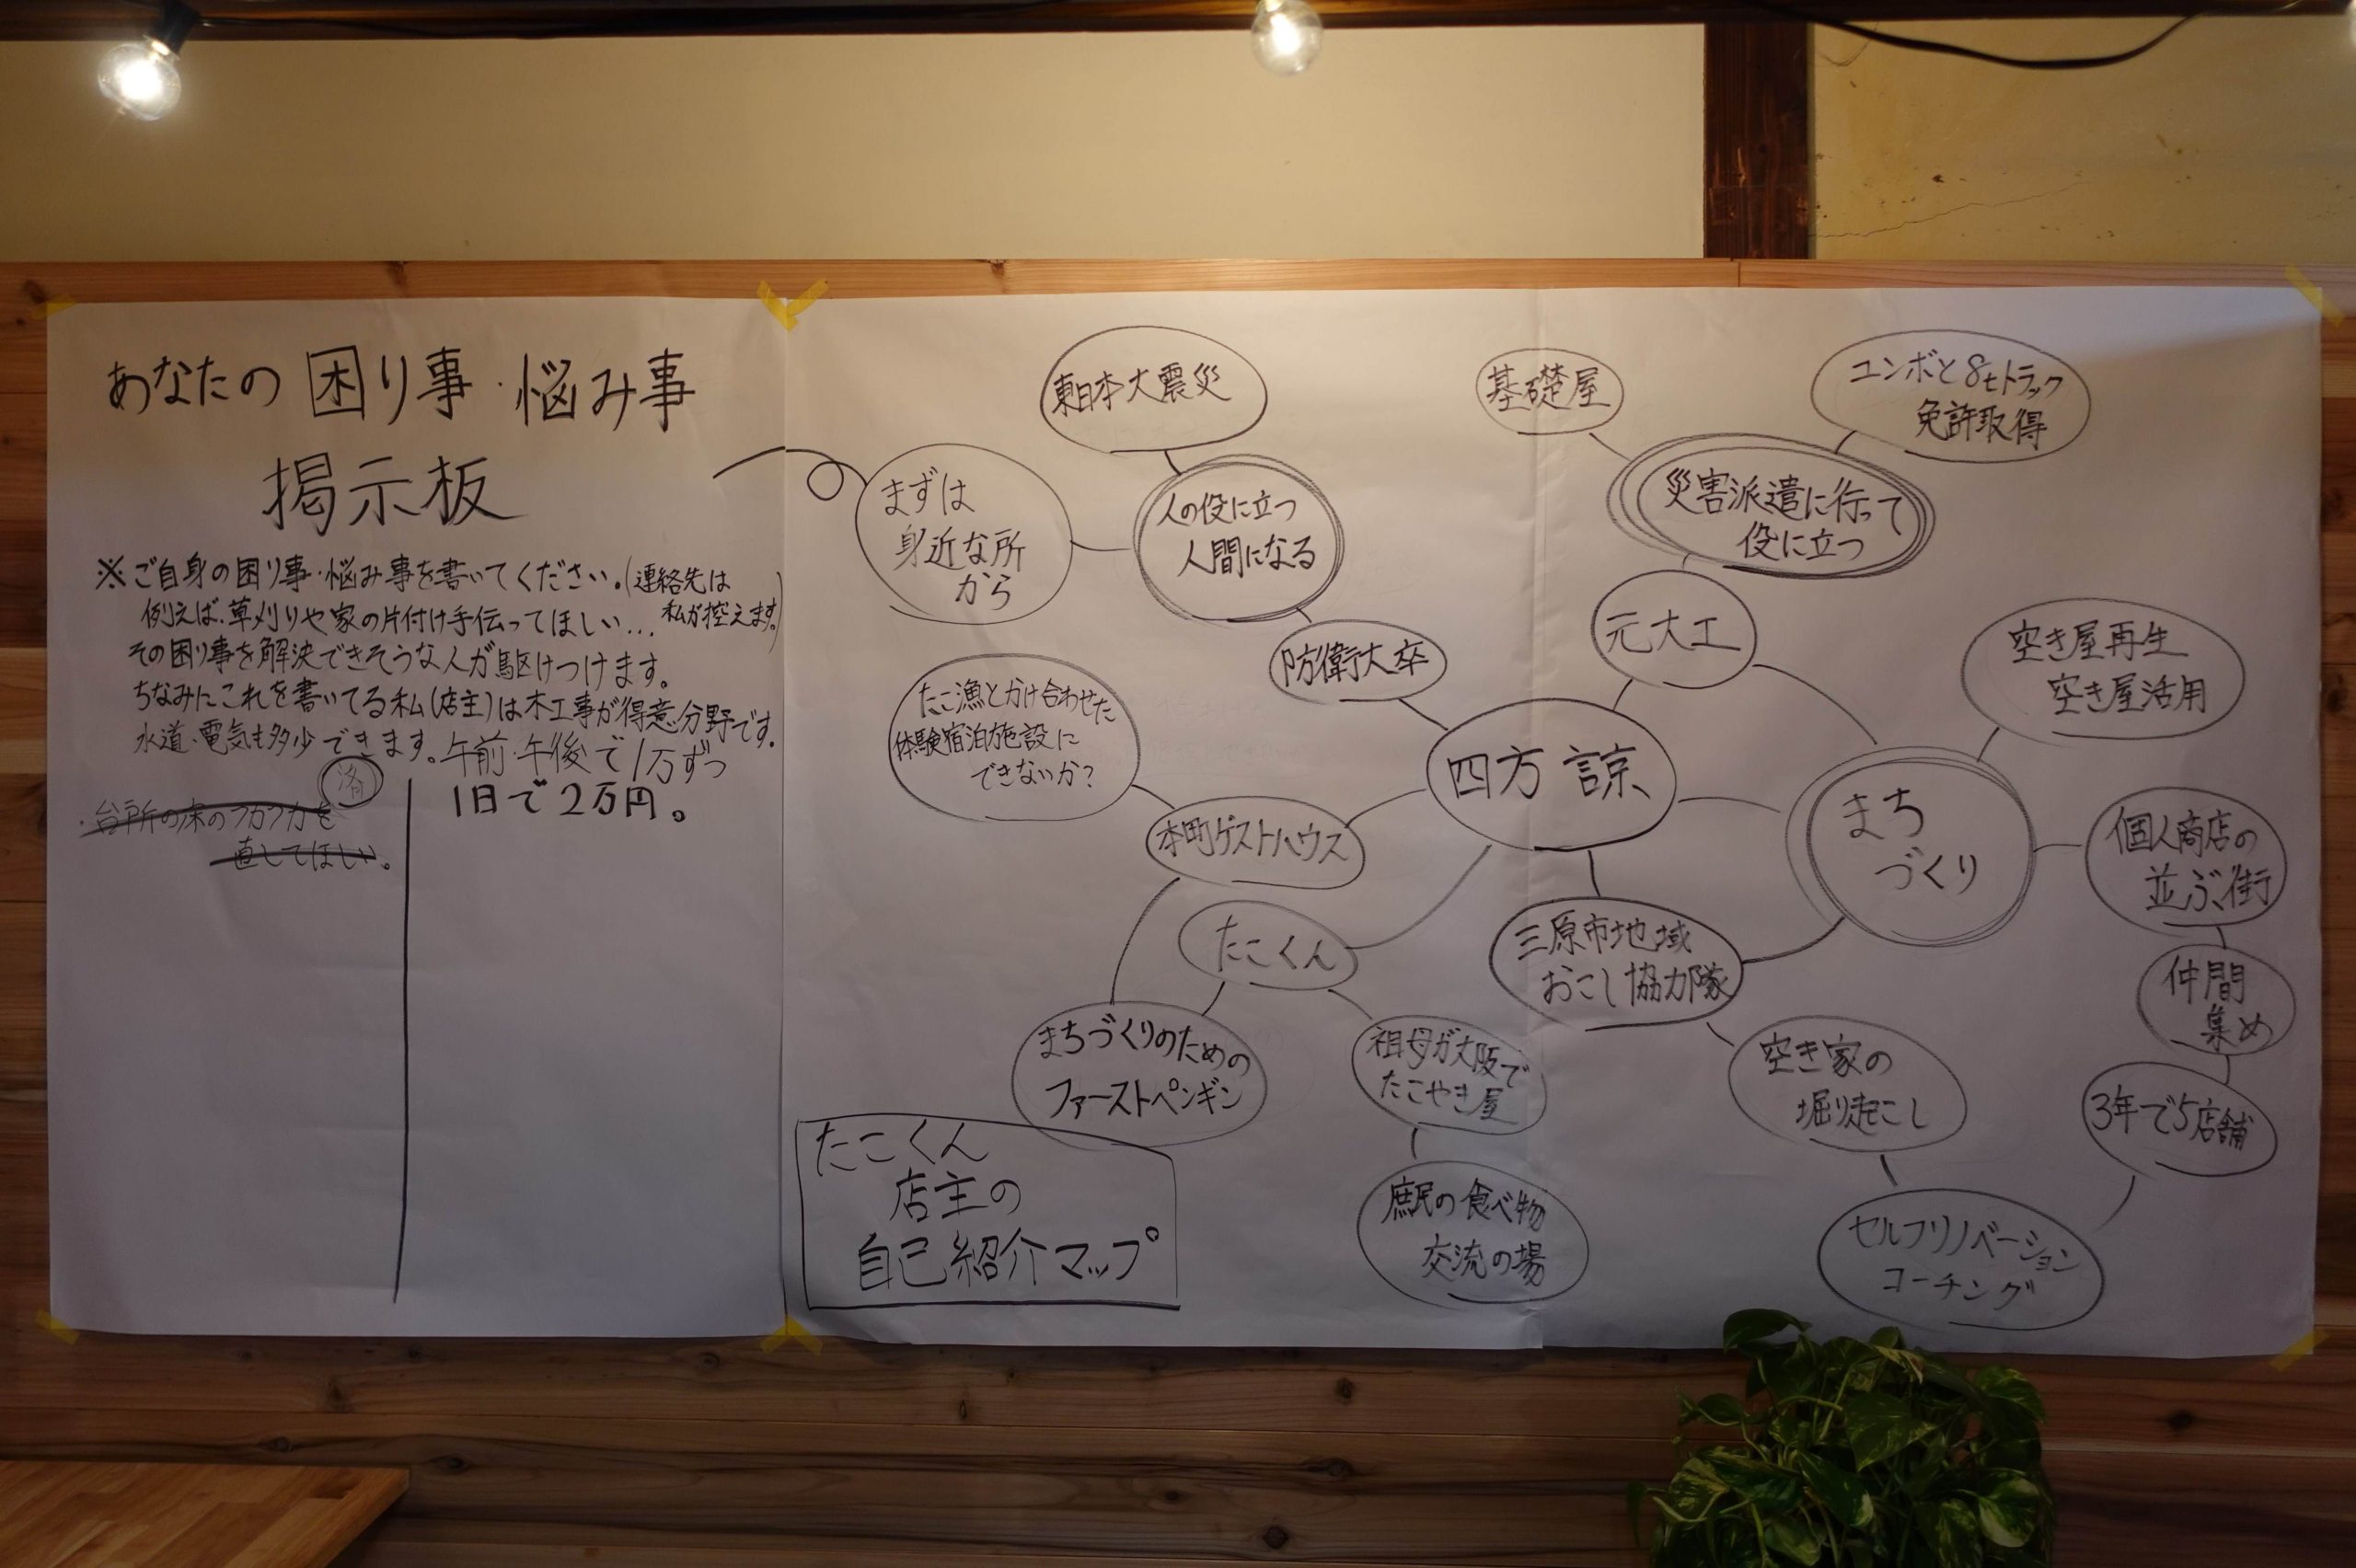 あなたの困り事・悩み事
掲示板
※ご自身の困り事・悩み事を書いてください。(連絡先は
私が控えます。)
例えば、草刈りや家の片付け手伝ってほしい…
その困り事を解決できそうな人が駆けつけます。
ちなみにこれを書いてる私(店主)は木工事が得意分野です。
水道・電気も多少できます。午前・午後で1万ずつ
1日で2万円。
済
・台所の床のフカフカを
直してほしい。
東日本大震災
まずは
身近な所
から
人の役に立つ
人間になる
防衛大卒
基礎屋
ユンボと8tトラック
免許取得
災害派遣に行って
役に立つ
元大工
空き屋再生
空き屋活用
たこ漁とかけ合わせた
体験宿泊施設に
できないか?
本町ゲストハウス
四方 諒
まち
づくり
個人商店の
並ぶ街
たこくん
三原市地域
おこし協力隊
仲間
集め
まちづくりのための
ファーストペンギン
祖母が大阪で
たこやき屋
空き家の
堀り起こし
3年で5店舗
庶民の食べ物
交流の場
セルフリノベーション
コーチング
たこくん
店主の
自己紹介マップ